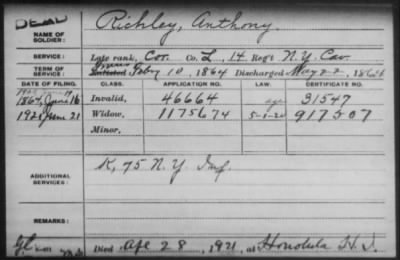 DEAD
NAME OF SOLDIER: Richley, Anthony.
SERVICE: Late rank, Cor. Co. L, 14 Reg't N.Y. Cav.
TERM OF SERVICE: Enlisted Feby 10, 1864 Discharged May 22, 186
DATE OF FILING. CLASS. APPLICATION NO. LAW. CERTIFICATE NO.
1864, June 16 Invalid, 46664 31547
1921 June 21 Widow, 1175674 5-1-20 917507
Minor,
ADDITIONAL SERVICES: K, 75 N.Y. Inf.
REMARKS:
Died Apl 28, 1921, at Honolulu H.I.